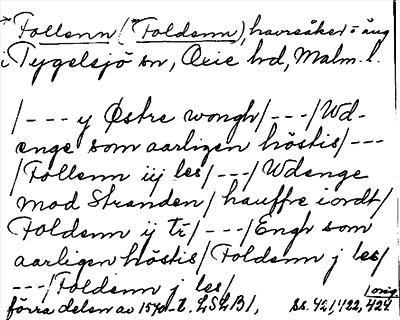 *Follenn (*Foldenn), havresåker o äng
i Tygelsjö sn, Oxie hd, Malm. l.
/--- y Østre wongh/---/Wd-
enge som aarligen höstis/---
/Follenn iij les/---/Wdenge
mod Stranden/hauffre iordt/
Foldenn ij tr/---/Engh som
aarligen höstis/Foldenn j les/
---/Foldenn j les/
förra delen av 1570-t. LSLB1, ss. 421, 422, 424. orig.